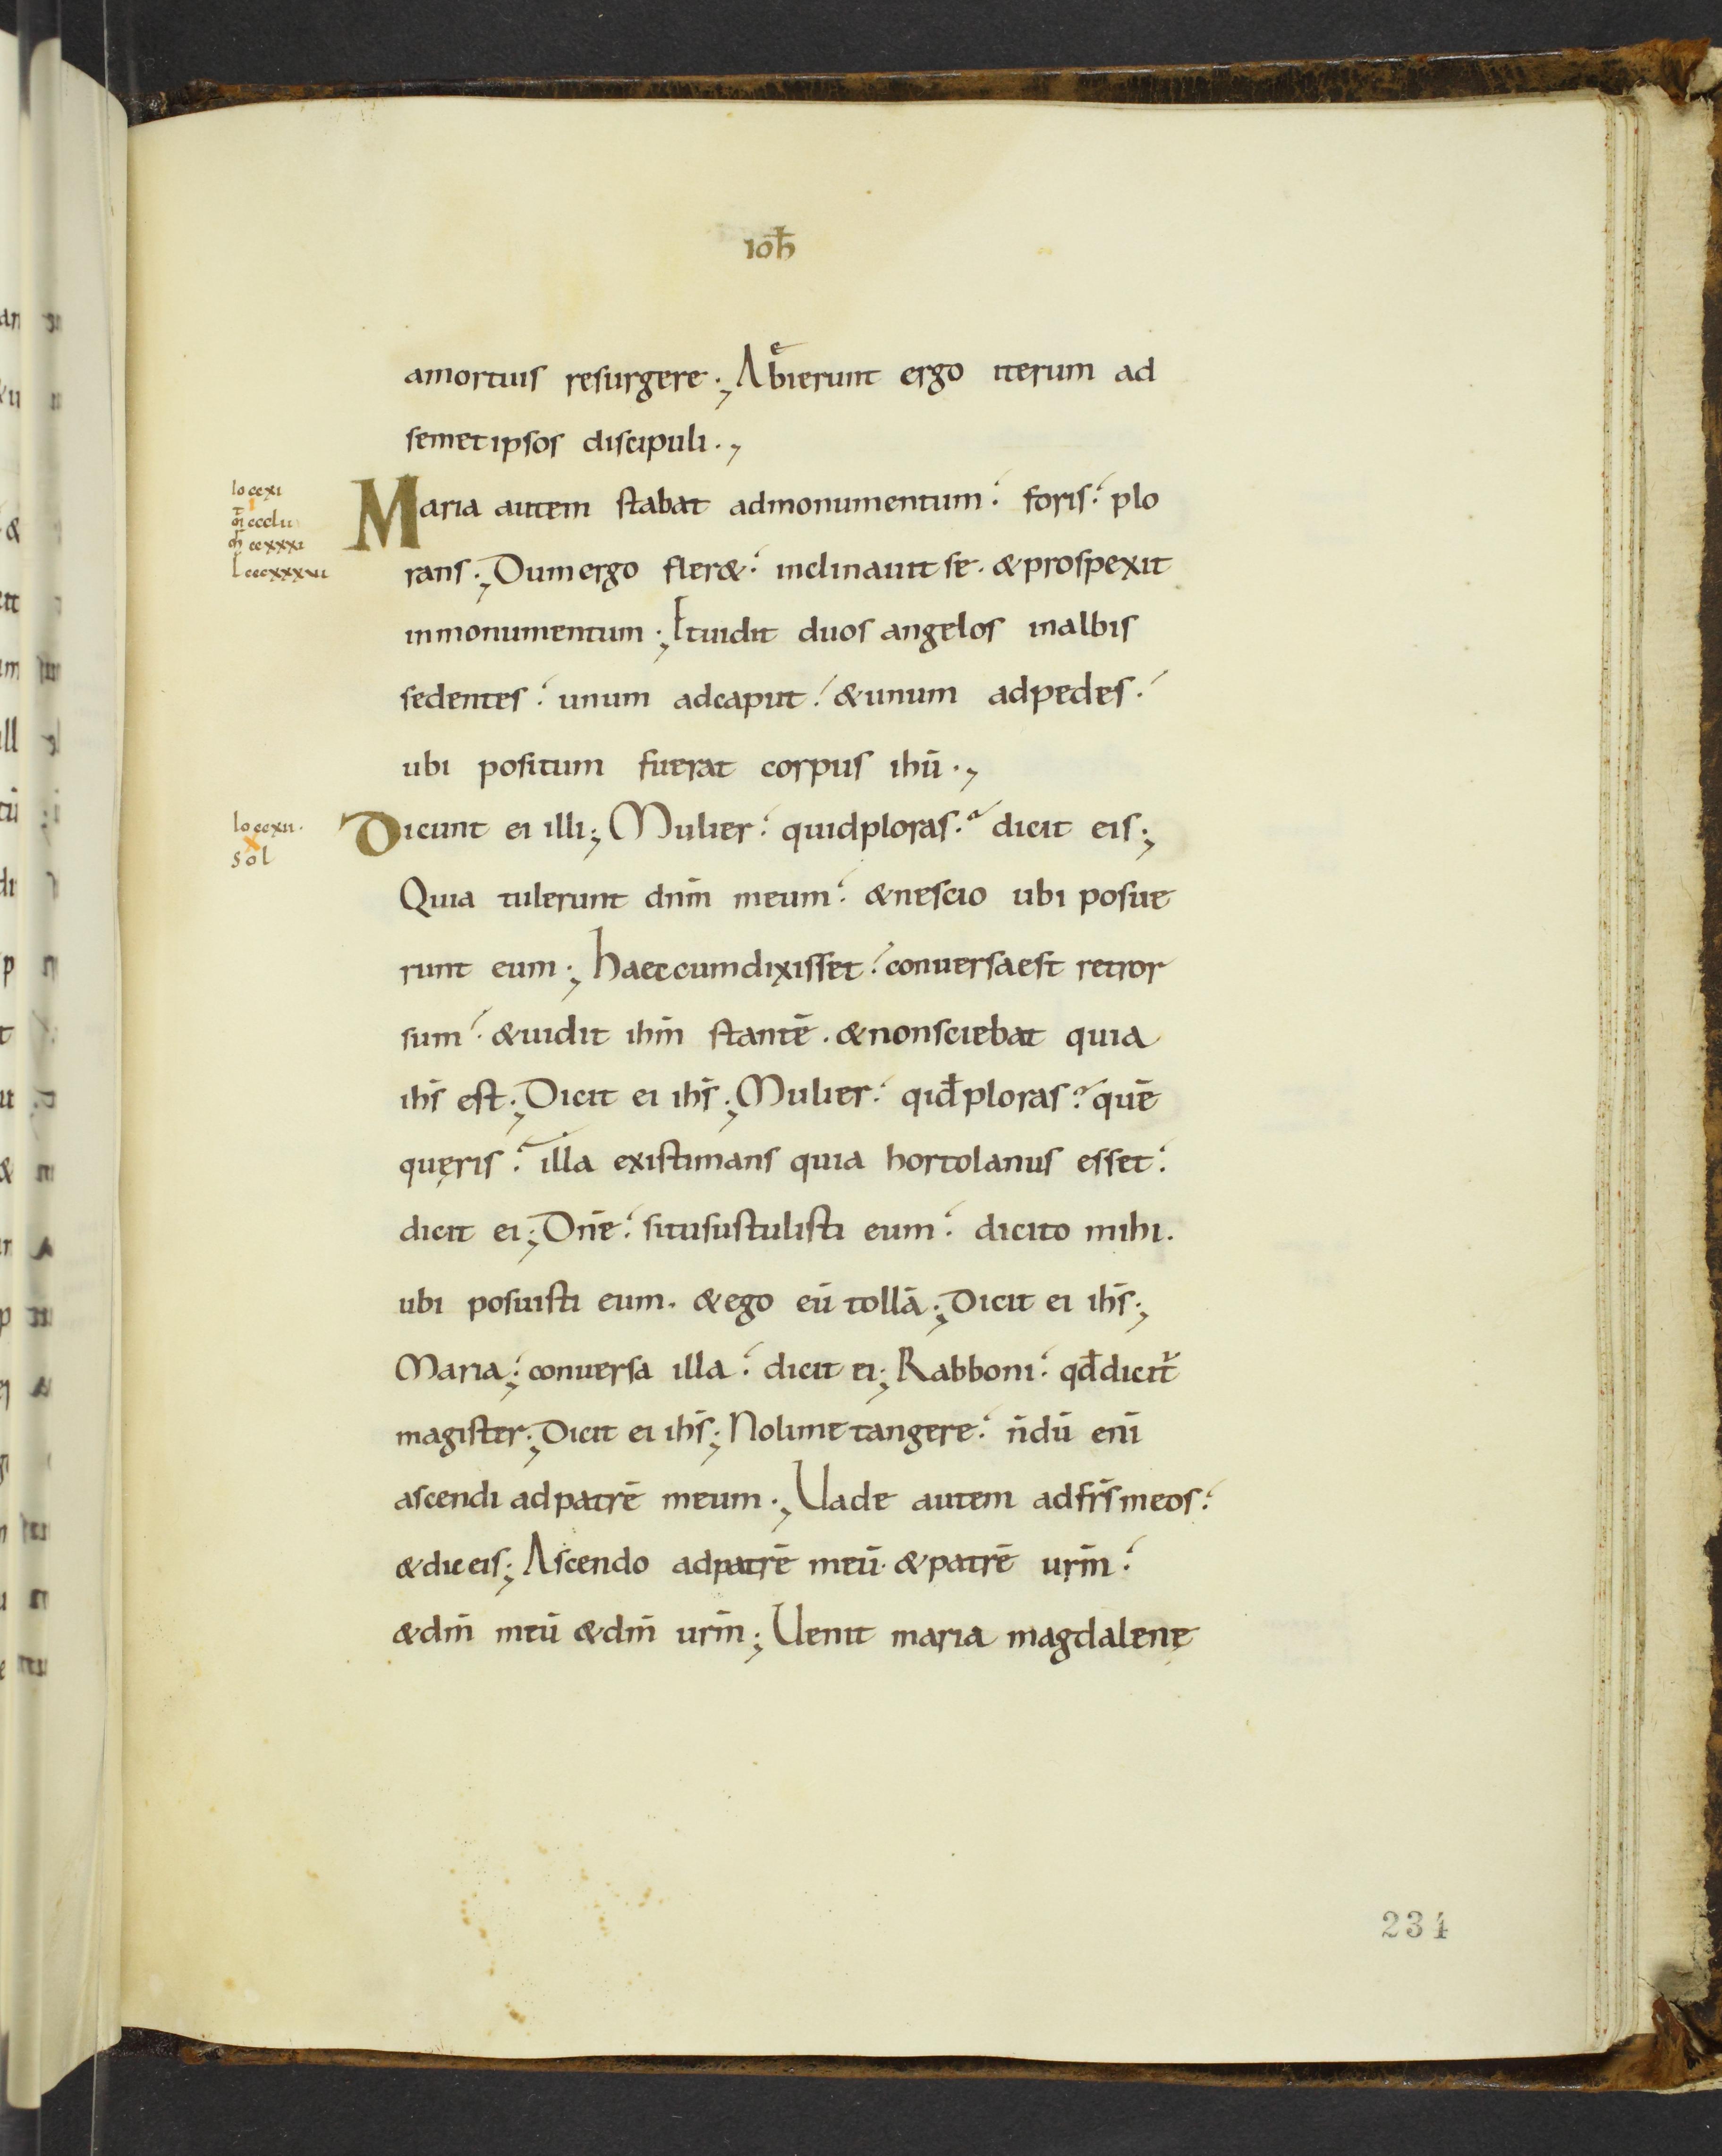 ioh̄
amortuis resurgere·; Abierunt ergo iterum ad
semetipsos discipuli·,
Io ccxi
Maria autem stabat admonumentum· foris· plo
ccxxxi
rans·; Dum ergo fler&· inclinauit se· & prospexit
inmonumentum·; Et uidit duos angelos inalbis
sedentes· unum adcaput· & unum adpedes·
ubi positum fuerat corpus ihū·,
Io ccxii·
x
Dicunt ei illi; Mulier· quidploras· dicit eis;
sol
Quia tulerunt dnm̄ meum· & nescio ubi posue
runt eum·; haec cum dixisset· conuersa est retror
sum· & uidit ihm̄ stantē· & nonsciebat quia
ihs̄ est·; Dicit ei ihs̄·; Mulier· qid̄ ploras· quē
quęris· illa existimans quia hortolanus esset·
dicit ei·; Dnē· situsustulisti eum· dicito mihi·
ubi posuisti eum· & ego eū tollā·; Dicit ei ihs̄·;
Maria·; conuersa illa· dicit ei·; Rabboni· qd̄ dicit̄
magister·; Dicit ei ihs̄·; Nolime tangere· n̄dū enī
ascendi adpatrē meum·; Uade autem adfrs̄ meos·
& dic eis·; Ascendo adpatrē meū· & patrē urm̄·
& dm̄ meū & dm̄ urm̄·; Uenit maria magdalenę
234